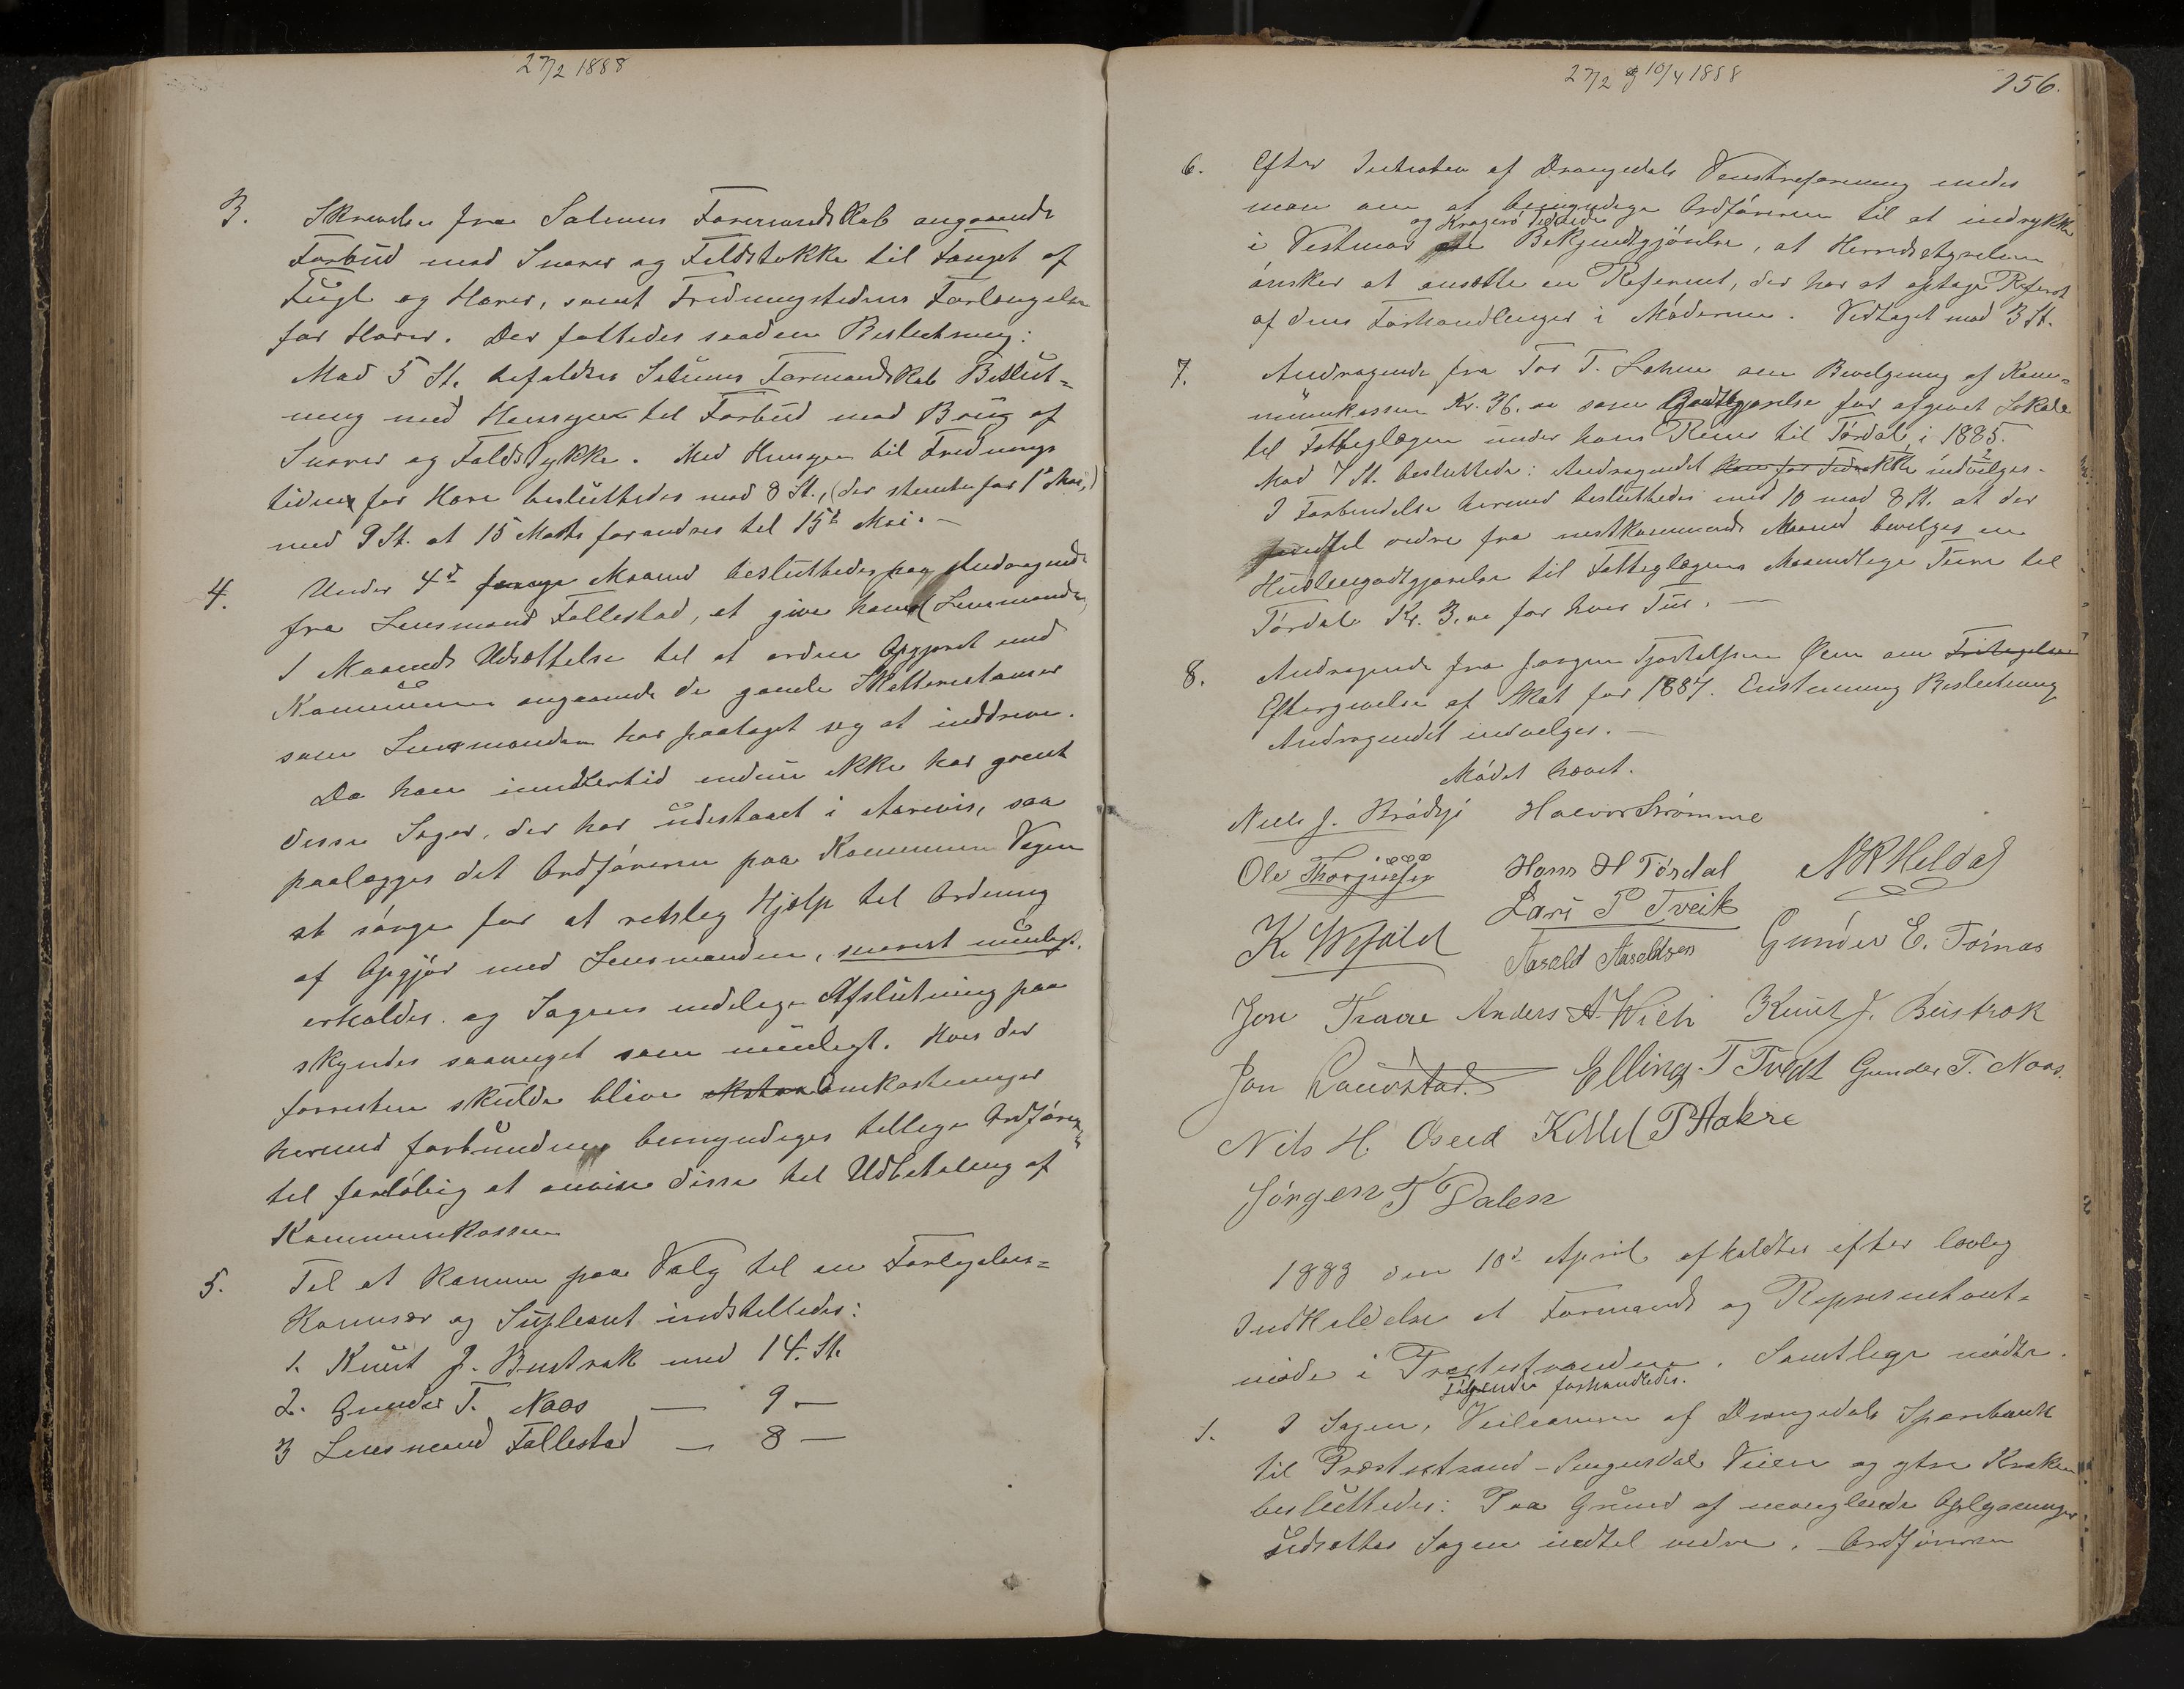 27/2 1888
3. Skrivelse fra Solums Formandskab angaaende
Forbud mod Snarer og Feldstokke til Fanget af
Fugl og Harer, samt Fredningstidens Forlængelse
for Harer. Der fattedes saadan Beslutning:
Mod 5 St. bifaldtes Solums Formandskab Beslut-
ning med Hensyn til Forbud mod Brug af
Snarer og Faldstykke. Med Hensyn til Frednings
tiden for Hare besluttedes med 8 St., (der stemte for 1ste Mai,)
med 9 St. at 15 Marts forandres til 15de Mai. —
4. Under 4de Maaned besluttedes paa Andragende
fra Lensmand Follestad, at give ham (Lensmanden)
1 Maaneds Udsættelse til at ordne Opgjøret med
Kommunen angaaende de gamle Skatterestanser
som Lensmanden har paataget sig at inddrive.
Da han imidlertid endnu ikke har greiet
disse Sager, der har udestaaet i Aarevis, saa
paalægges det Ordføreren paa Kommunens Vegne
at sørge for at retslig Hjælp til Ordning
af Opgjør med Lensmanden, snarest muligt
erholdes. og Sagens endelige Afslutning paa
skyndes saameget som muligt. Hvis der
forresten skulde blive Omkostninger
hermed forbundne bemyndiges tillige Ordføreren
til foreløbig at anvise disse til Udbetaling af
Kommunekassen
5. Til at komme paa Valg til en Forligelses-
Komisær og Supleant indstilledes:
1. Knut J. Bustrak med 14. St.
2. Gunder T. Naas — 9 —
3 Lensmand Follestad — 8 —
27/2 & 10/4 1888
156.
6. Efter Initiativ af Drangedals Venstreforening enedes
man om at bemyndige Ordføreren til at indrykke
og Kragerø Tidende
i Vestmar Bekjendtgjørelse, at Herredsstyrelsen
ønsker at ansætte en Referent, der har at optage Referat
af dens Forhandlinger i Møderne. Vedtaget mod 3 St.
7. Andragende fra Tor T. Lohne om Bevilgning af Kom-
munekassen Kr. 36.00 som Godtgjørelse for afgivet Lokale
til Fattiglægen under hans Reiser til Tørdal i 1885.
Mod 7 St. besluttedes: Andragendet ikke indvilges.
I Forbindelse hermed besluttedes med 10 mod 8 St. at der
indtil videre fra nestkommende Maaned bevilges en
Husleiegodtgjørelse til Fattiglægens Maanedlige Ture til
Tørdal Kr. 3.00 for hver Tur. —
8. Andragende fra Jørgen Tjostolfsen Øen om Fritagelse
Eftergivelse af Skat for 1887. Enstemmig Beslutning
Andragendet indvilges. —
Mødet hævet.
Niels J. Brødsjø Halvor Strømme
Ole Thorjussen Hans H Tørdal N R Heldal
K. Wefald Lars P Tveit
Aasold Aasoldsen Gunder E. Tørnes
Jon Traae Anders A. Wich Knut J. Bustrak
Jon Lauvstad. Elling T Tvedt Gunder T. Naas.
Nils H. Oseid Kittel P Aakre
Jørgen T Dalen
1888 den 10de April afholdtes efter lovlig
Indkaldelse et Formands og Representant-
møde i Præstestranden. Samtlige mødte.
Følgende forhandledes.
1. I Sagen, Veilaanene af Drangedals Sparebank
til Præstestrand - Tveitsdal Veien og ytre Kroken
besluttedes: Paa Grund af manglende Oplysninger
udsættes Sagen indtil videre. Ordføreren